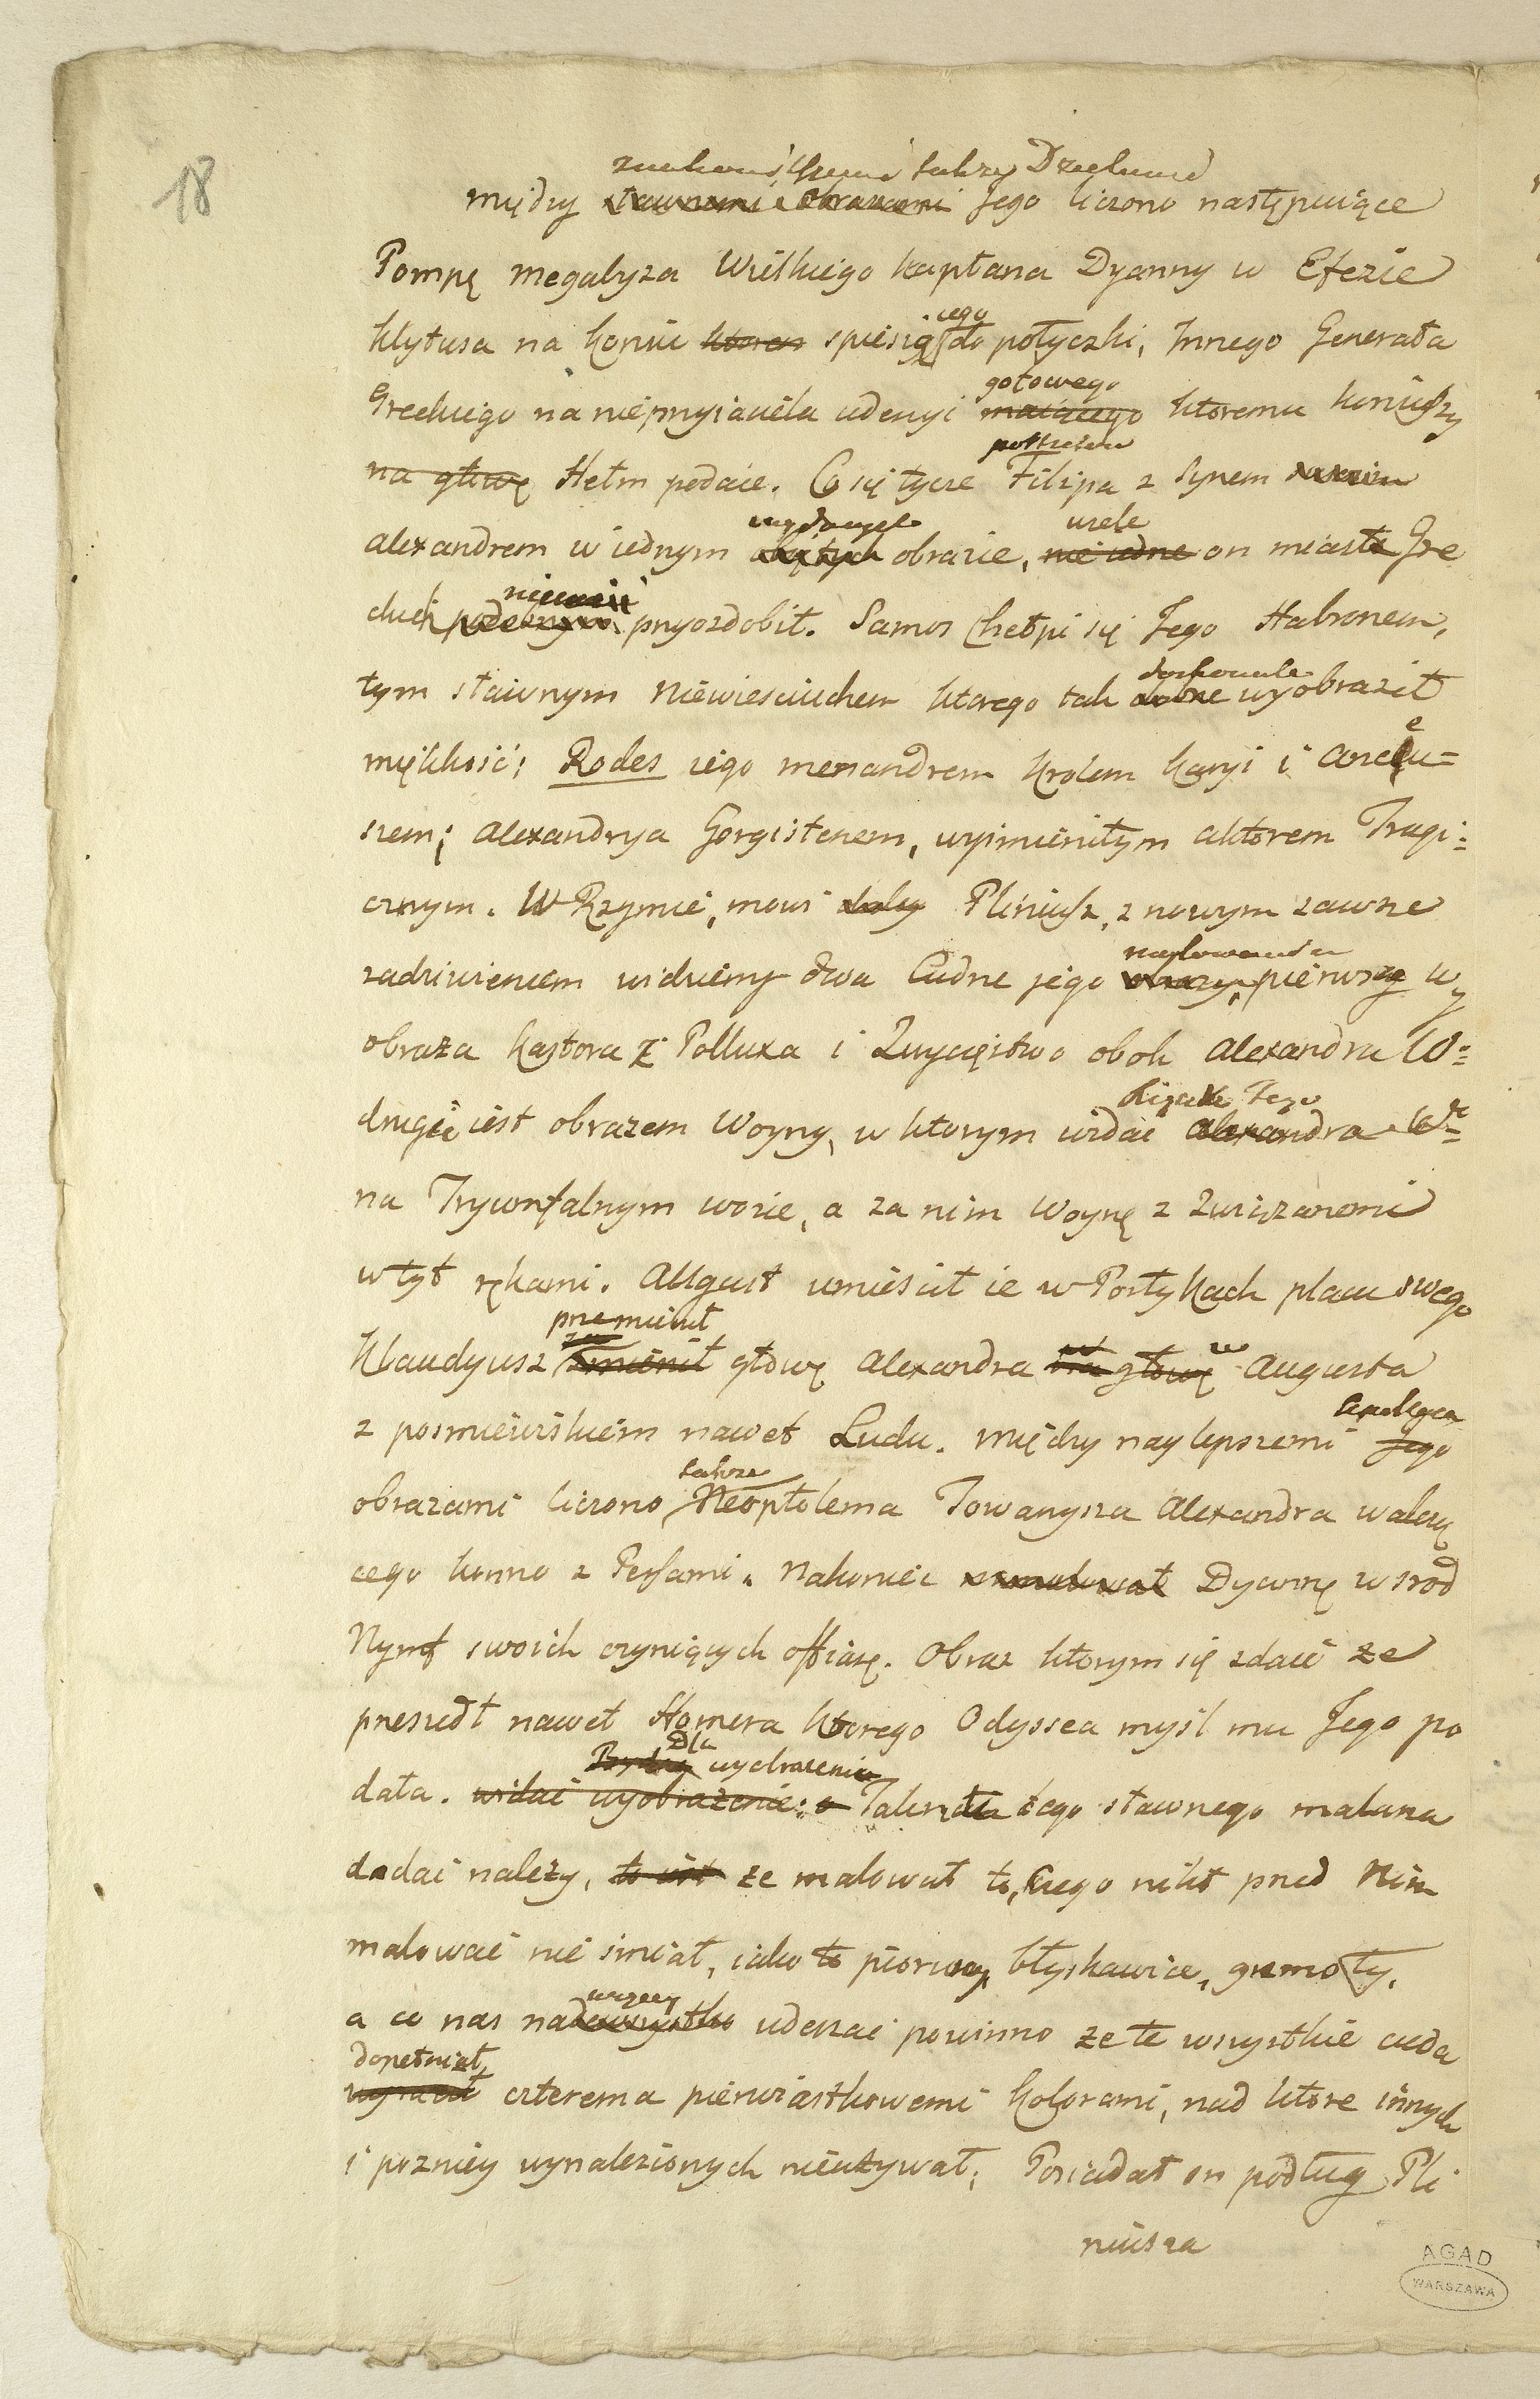 18
znakomitszemi także Dziełami
między sławnemi obrazami Jego liczono następuiące
Pompę Megabyza Wielkiego kapłana Dyanny w Efezie
Klytusa na koniu ktoren spiesiącego do potyczki, Innego Generała
gotowego
Greckiego na nieprzyiaciela uderzyć maiącego ktoremu koniuszy
portretow
na głowę Hełm podaie. Co się tycze Filipa z Synem swoim
wiele
Alexandrem w iednym obrazie, nie iedne on miasta Gre
niemi
ckich podobnym przyozdobił. Samos chełpi się Jego Habronem,
doskonale
tym sławnym Niewiesciuchem ktorego tak dobrze wyobraził
miękkość; Rodes iego menandrem krolem Karyi i Anceu=
szem; Alexandrya Gorgistenem, wyimienitym aktorem Tragi=
cznym. W Rzymie, mowi daley Pliniusz, z nowym zawsze
malowania
zadziwieniem widziemy dwa Cudne jego obrazy, pierwsze wy
obraża Kastora i Polluxa i Zwycięstwo obok Alexandra W=
Tego
drugie iest obrazem Woyny, w ktorym widać Alexandra W=
na Tryumfalnym wozie, a za nim Woynę z związanemi
w tył rękami. August umieścił ie w Portykach placu swego
przemienił
Klaudyusz zmienił głowę Alexandra na głowę w Augusta
z posmiewiskiem nawet Ludu. między naylepszemi Jego
Apellesa
obrazami liczono także Neoptolema Towarzysza Alexandra walczą
cego konno z Persami. Nakoniec namalował Dyannę wsrod
Nymf swoich czyniących offiarę. Obraz ktorym się zdaie że
przeszedł nawet Homera ktorego Odyssea myśl mu Jego po
Dla wyobrażenia
data. widać wyobrażenie: o Talentu tego sławnego malarza
dodać należy, to iest że malował to, czego nikt przed Nim
malować nie śmiał, iako to pioruny, błyskawice, grzmoty,
a co nas nadewszystko uderzać powinno że te wszystkie cuda
dopełniał
czterema pierwiastkowemi kolorami, nad ktore innych
i pozniey wynalezionych nieużywał; Posiadał on podług Pli
niusza
AGAD
WARSZAWA